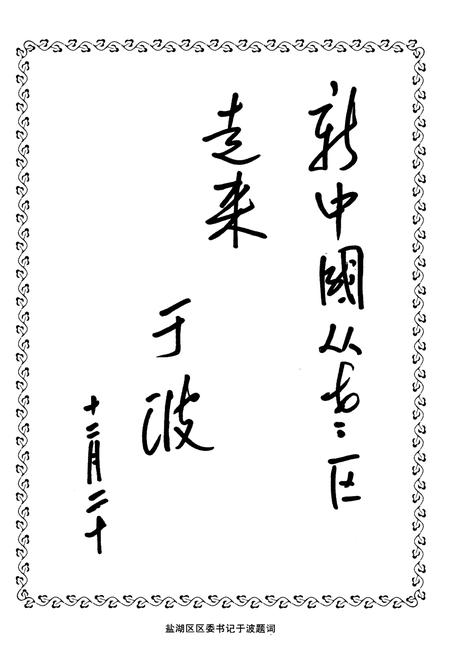 新中國从 区
走来
于波
十二月二十
盐湖区区委书记于波题词